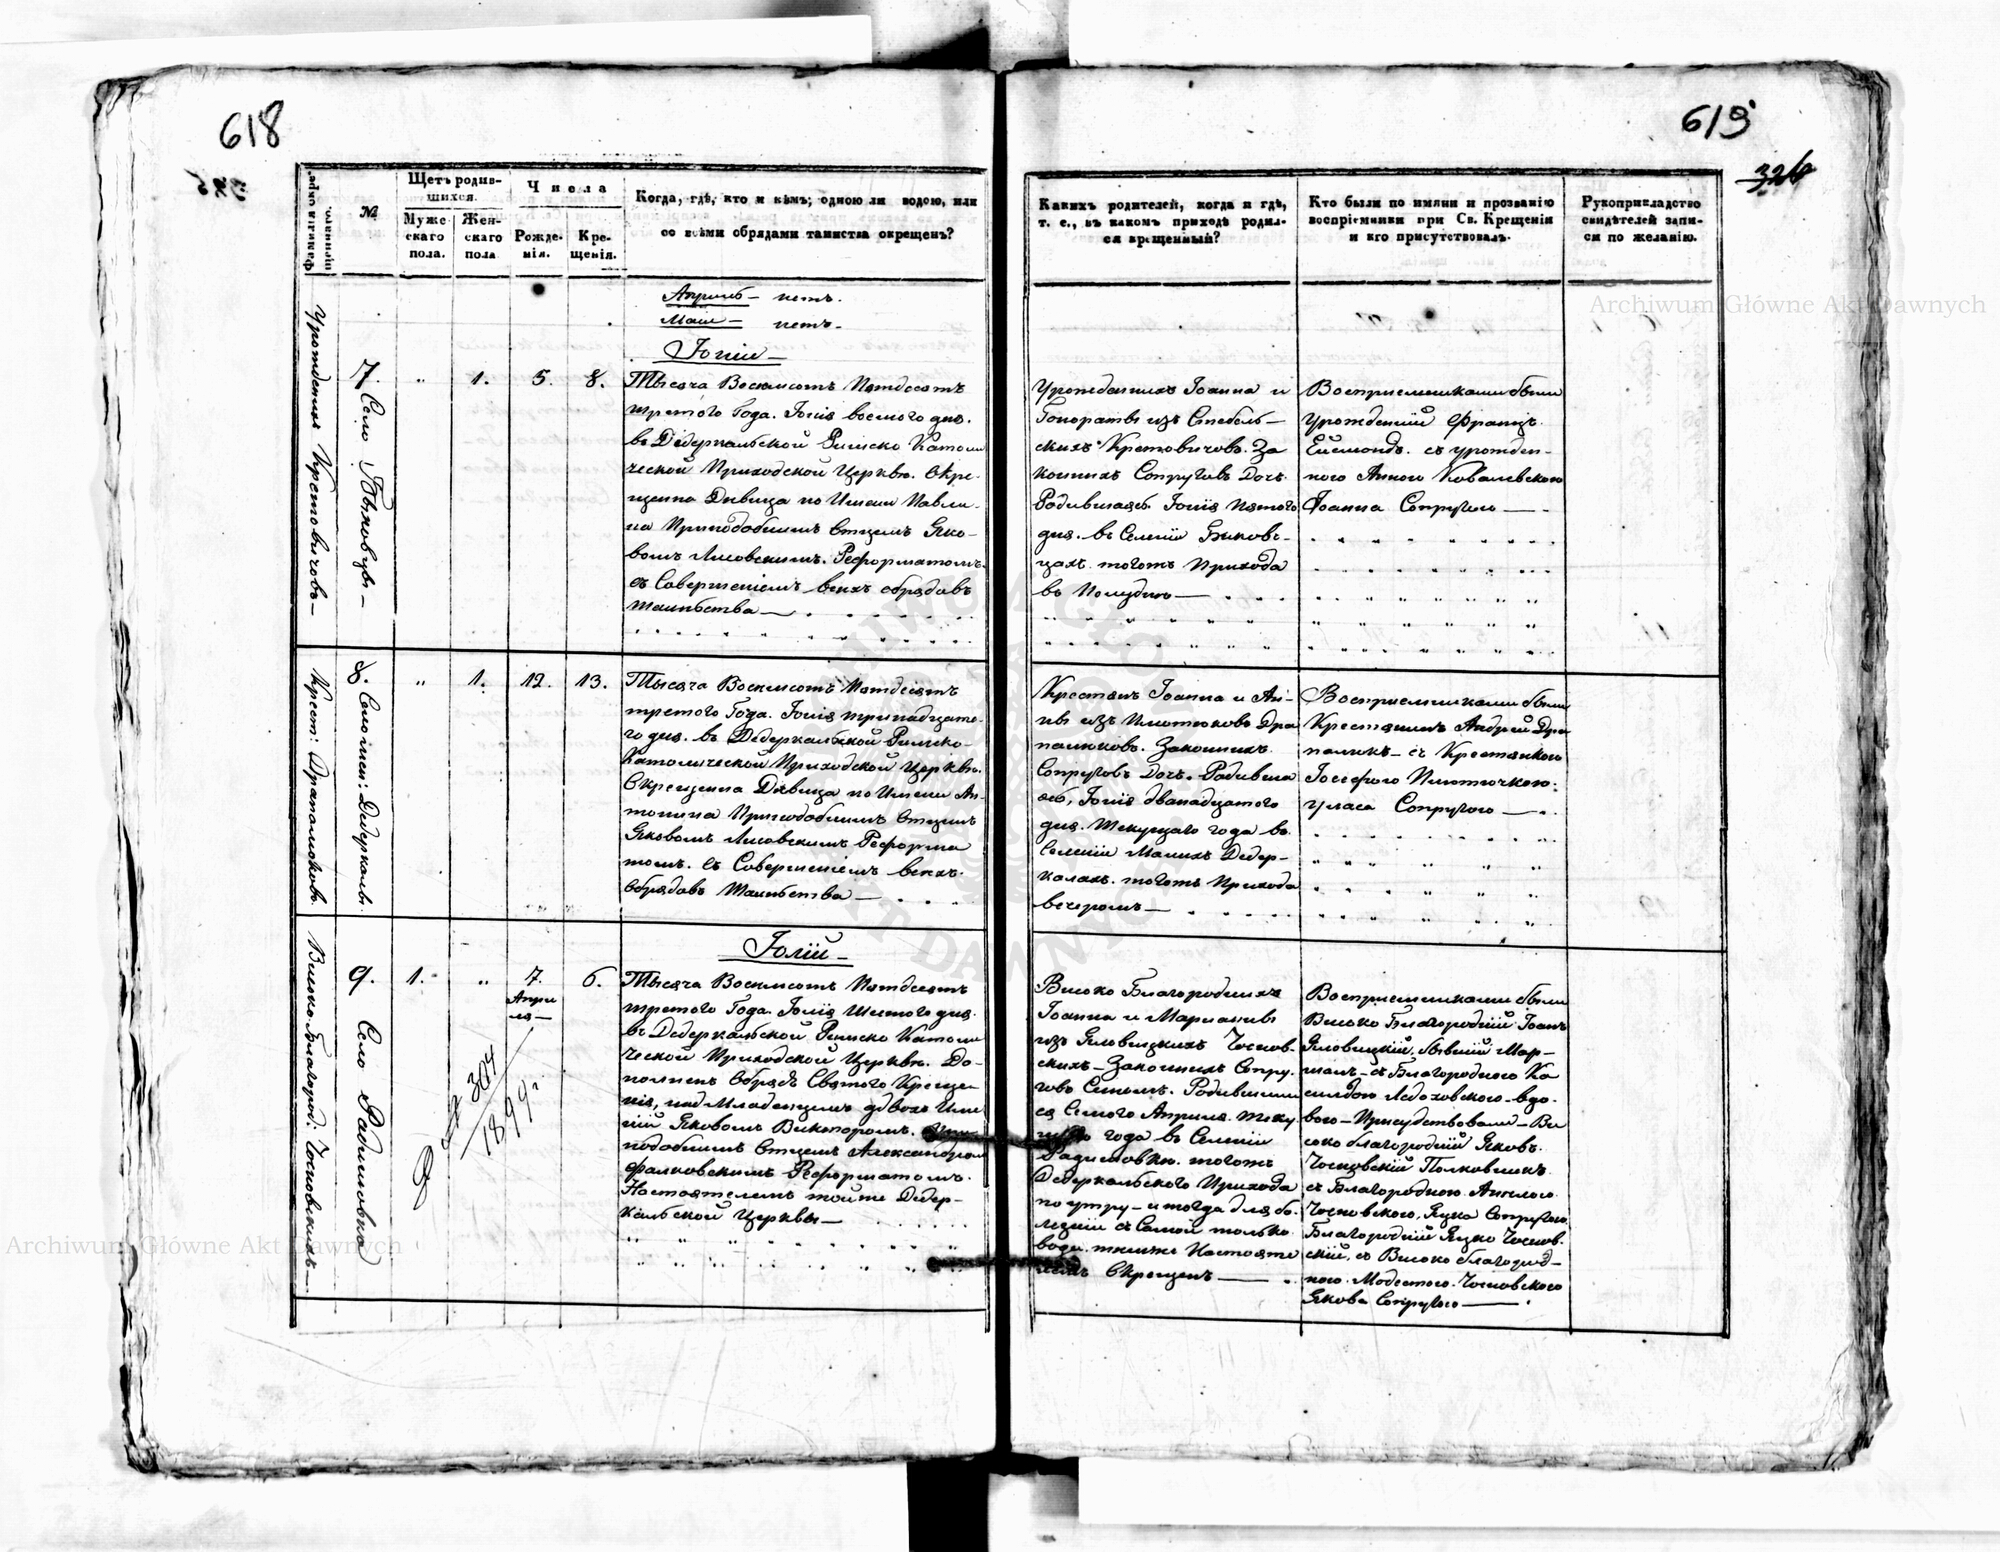 618
619
326
Фамилія окре-
щеннаго.
№
Щетъ родив-
шихся.
Муже-
скаго
пола.
Жен-
скаго
пола
Числа
Рожде-
нія.
Кре-
щенія.
Когда, гдѣ, кто и кѣмъ; одною ли водою, или
со всѣми обрядами таинства окрещенъ?
Апрель — нетъ.
Маій — нетъ.
Іюній —
Урожденныхъ Кретовичовъ —
7. Село Бѣковцы —
" 1. 5. 8.
Тысяча Восемсотъ Пятдесятъ
третого Года. Іюнія восмого дня.
въ Дедеркальской Римско Католи
ческой Приходской Церкви. Окре-
щенна Дѣвица по Имени Павли-
на Приподобнымъ Отцемъ Яко-
вомъ Лисовскимъ. Реформатомъ.
съ Совершеніемъ всехъ обрядовъ
Таинъства —
Крест: Драпалюковъ.
8. Селенiи: Дедеркалы.
" 1. 12. 13.
Тысяча Восемсотъ Пятдесятъ
третого Года. Іюнія тринадцато-
го дня. въ Дедеркальской Римско-
Католической Приходской Церкви.
Окрещенна Дѣвица по Имени Ан-
тонина Приподобнымъ Отцемъ
Яковомъ Лисовскимъ Реформа
томъ. съ Совершеніемъ всехъ
Обрядовъ Таинъства —
Іюлій —
Высоко-Благород: Чосновскихъ —
9. Село Радиловка
1. " 7. 6.
Апри
ля —
304
1899 г.
Тысяча Восемсотъ Пятдесятъ
третого Года. Іюлія Шестого дня.
въ Дедеркальской Римско Католи
ческой Приходской Церкви. До-
полненъ Обрядъ Святого Креще-
нія, над Младенцемъ двохъ Име
ній Яковомъ Викторомъ. При-
подобнымъ Отцемъ Александромъ
Фалковскимъ Реформатомъ.
Настоятелемъ тойже Дедер-
кальской Церквы —
Какихъ родителей, когда и гдѣ,
т. е., въ какомъ приходѣ родил-
ся крещенный?
Кто были по имяни и прозванію
воспріемники при Св. Крещеніи
и кто присутствовалъ.
Рукоприкладство
свидѣтелей запи-
си по желанію.
Урожденныхъ Іоанна и
Гонораты изъ Стебель-
скихъ Кретовичовъ. За
конныхъ Супруговъ Дочь.
Родившаясь Іюнія Пятого
дня. въ Селеніи Биковъ-
цахъ. тогожъ Прихода
въ Полудню —
Восприемниками были
Урожденній Францъ
Ейсмондъ. съ урожден-
ного Анною Ковалевского
Іоанна Супругою —
Крестянъ Іоанна и Ан-
ны изъ Плотюковъ Дра
палюковъ. Законныхъ
Супруговъ Дочь. Родивша
ясь, Іюнія дванадцатого
дня. Текущаго года въ
Селеніи Малихъ Дедер-
калахъ. тогожъ Прихода
вечеромъ —
Восприемниками были
Крестянинъ Андрей Дра
палюкъ — съ Крестянкою
Іосефою
Супругою —
Високо Благородныхъ
Іоанна и Марианны
изъ Яловицкихъ Чоснов-
скихъ — Законныхъ Супру-
говъ Сынъ. Родивший
ся Семого Апреля. теку
щаго года въ Селеніи
Радиловки. тогожъ
Дедеркальского Прихода
по утру — и тогда для бо-
лезніи съ Самой только
воды. тымже Настояте
лемъ Окрещенъ —
Восприемниками были
Високо Благородній Іоанъ
Яловицкій, бывшій Мар-
шалъ — съ Благородного Ка
силдою Ледоховского вдо-
вою — Присудствовали — Ви
соко благородній Яковъ
Чосновскій Полковникъ
съ Благородною Анелею
Чосновского, Яцка Супругою.
Благородній Яцко Чоснов-
скій, съ Високо благород-
ного Модестою Чосновского
Якова Супругою —
Archiwum Główne Akt Dawnych
Archiwum Główne Akt Dawnych